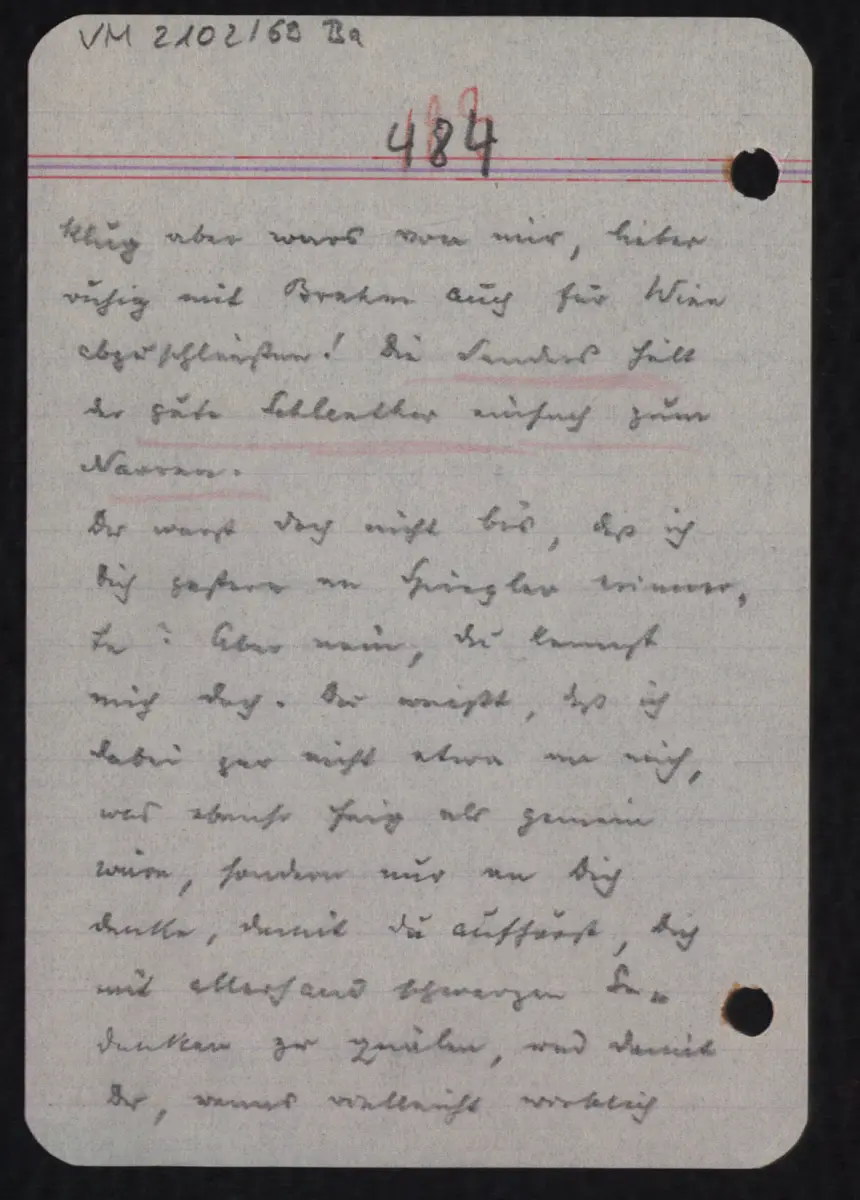 VM 2102/68 Ba
484
klug aber wars von mir, lieber
ruhig mit Brahm auch für Wien
abzuschließen! Die Sanders hält
der gute Schlenther einfach zum
Narren.
Du warst doch nicht bös, daß ich
Dich gestern an Spiegler erinner-
te? Aber nein, du kennst
mich doch. Du weißt, daß ich
dabei gar nicht etwa an mich,
was ebenso feig als gemein
wäre, sondern nur an Dich
denke, damit du aufhörst, Dich
mit allerhand schwarzen Ge-
danken zu quälen, und damit
Du, wenns vielleicht wirklich